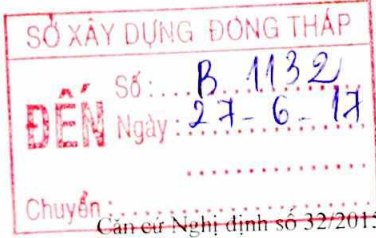 SỞ XÂY DỰNG ĐỒNG THÁP
ĐẾN
Số: B 1132
Ngày: 27-6-17
Chuyển:
Căn cứ Nghị định số 32/2015